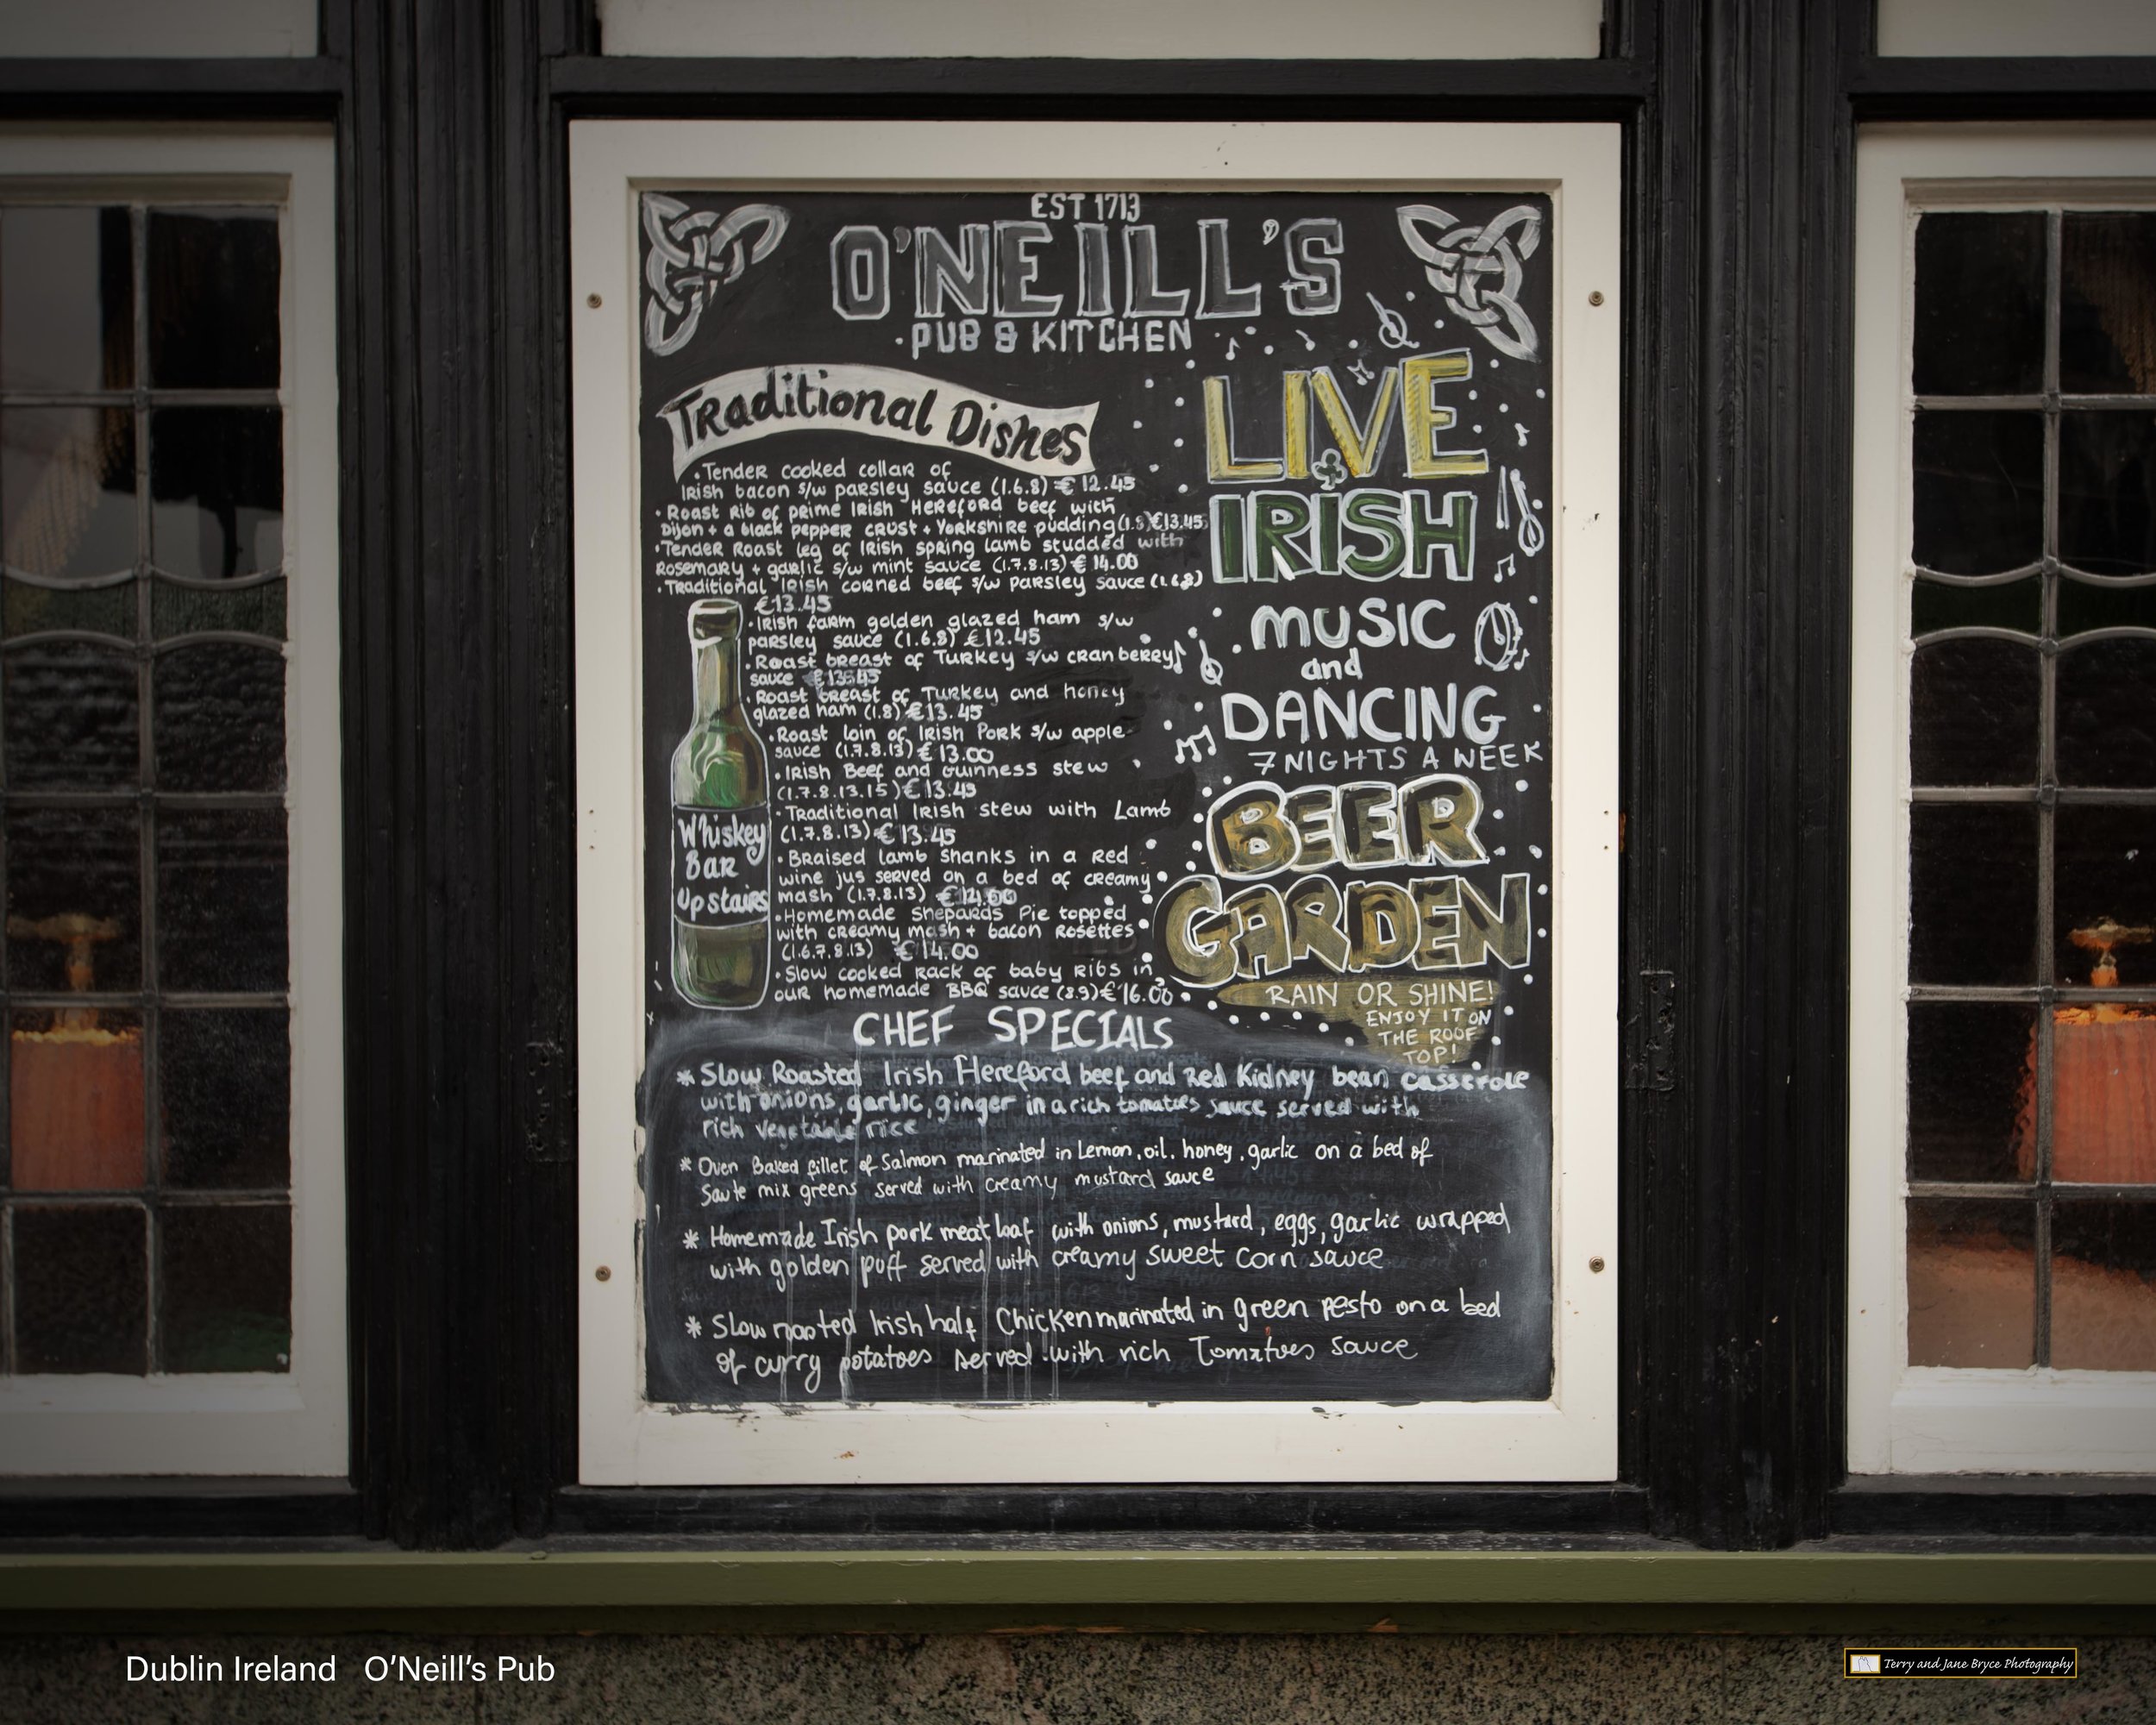 EST 1713
O'NEILL'S
PUB & KITCHEN
Traditional Dishes
• Tender cooked collar of
Irish bacon s/w parsley sauce (1.6.8) € 12.45
• Roast Rib of prime Irish Hereford beef with
Dijon + a black pepper crust + Yorkshire pudding (1.8) €13.45
• Tender Roast leg of Irish spring lamb studded with
Rosemary + garlic s/w mint sauce (1.7.8.13) € 14.00
• Traditional Irish corned beef s/w parsley sauce (1.6.8)
€13.45
• Irish farm golden glazed ham s/w
parsley sauce (1.6.8) €12.45
• Roast breast of Turkey s/w cranberry
sauce
• Roast breast of Turkey and honey
glazed ham (1.8) €13.45
• Roast loin of Irish Pork s/w apple
sauce (1.7.8.13) € 13.00
• Irish Beef and Guinness stew
(1.7.8.13.15) € 13.45
• Traditional Irish stew with Lamb
(1.7.8.13) € 13.45
• Braised lamb shanks in a red
wine jus served on a bed of creamy
mash (1.7.8.13)
• Homemade Shepards Pie topped
with creamy mash + bacon Rosettes
(1.6.7.8.13) €14.00
• Slow cooked rack of baby ribs in
our homemade BBQ sauce (8.9) €16.00
Whiskey
Bar
Upstairs
LIVE
IRISH
MUSIC
and
DANCING
7 NIGHTS A WEEK
BEER
GARDEN
RAIN OR SHINE!
ENJOY IT ON
THE ROOF
TOP!
CHEF SPECIALS
* Slow Roasted Irish Hereford beef and Red Kidney bean casserole
with onions, garlic, ginger in a rich tomatoes sauce served with
rich vegetable rice
* Oven Baked fillet of Salmon marinated in Lemon, oil, honey, garlic on a bed of
Saute mix greens served with creamy mustard sauce
* Homemade Irish pork meat loaf with onions, mustard, eggs, garlic wrapped
with golden puff served with creamy sweet corn sauce
* Slow roasted Irish half Chicken marinated in green pesto on a bed
of curry potatoes served with rich Tomatoes sauce
Dublin Ireland O'Neill's Pub
Terry and Jane Bryce Photography